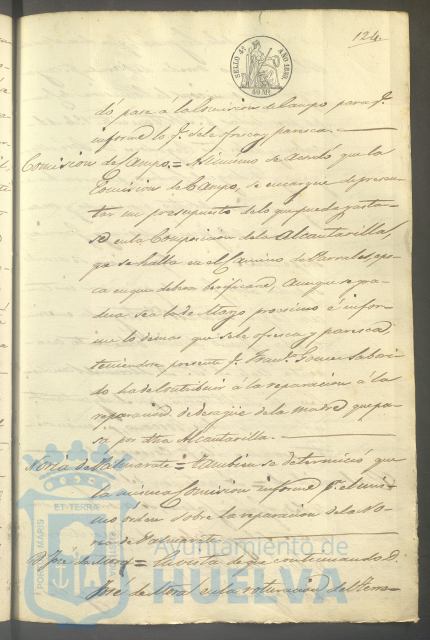 124.
SELLO 4º AÑO 1849.
40 MRS
dó pase á la Comision de Campo para qe.
informe lo qe. se le ofresca y paresca.
Comision de Campo. = Asimismo se acordó que la
Comision de Campo, se encargue de presen-
tar un presupuesto de lo que pueda gastar-
se en la Composicion de la Alcantarilla,
que se halla en el Camino de
ca en que deba verificarse, aunque se gra-
dua sea la de Mayo procsimo é infor-
me lo demas que se le ofresca y paresca
teniendose presente qe. Franco. Gomez Labori-
do ha de contribuir á la reparacion á la
reparacion de desagüe de la madre que pa-
sa por dha Alcantarilla.
Noria de = Tambien se determinó que
la misma Comision informe pr. el mis-
mo orden sobre la reparacion de la No-
ria de
D. José de Mora = En vista de que continuando D.
José de Mora en la roturacion del terre-
PORTUS MARIS ET TERRÆ
Ayuntamiento de
HUELVA